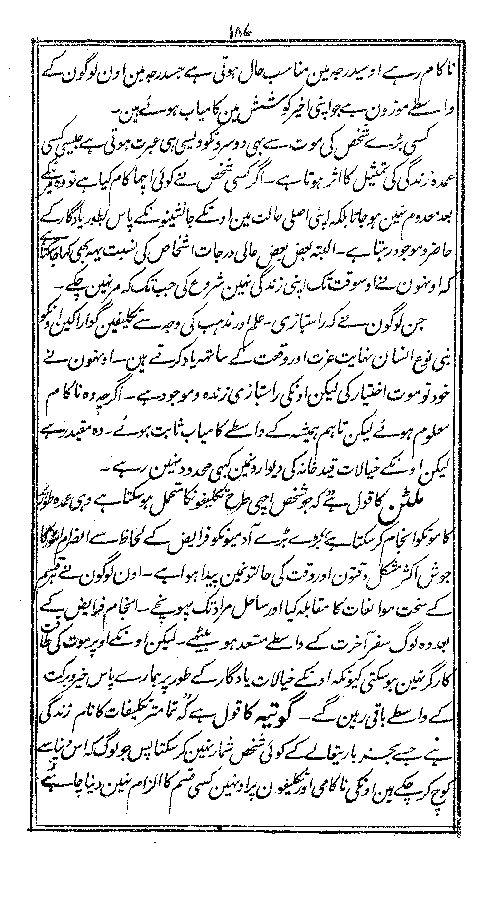 ۱۸۷
ناکام رہے اوسیدرجہ مین مناسب حال ہوتی ہے جسدرجہ مین اون لوگون کے
واسطے موزون ہے جو اپنی اخیر کوشش مین کامیاب ہوئے ہین۔
کسی بڑے شخص کی موت سے بھی دوسرونکو ویسی ہی عبرت ہوتی ہے جیسی کسی
عمدہ زندگی کی تمثیل کا اثر ہوتا ہے۔ اگر کسی شخص نے کوئی اچھا کام کیا ہے تو وہ مرنیکے
بعد معدوم نہین ہوجاتا بلکہ اپنی اصلی حالت مین اوسکے جانشینونکے پاس بطور یادگار کے
حاضر و موجود رہتا ہے۔ البتہ بعض بعض عالی درجات اشخاص کی نسبت یہہ بھی کہا جاسکتا ہے
کہ اونہون نے اوسوقت تک اپنی زندگی نہین شروع کی جب تک کہ مر نہین چکے۔
جن لوگون نے کہ راستبازی۔ علم اور مذہب کی وجہ سے تکلیفین گوارا کین اونکو
بنی نوع انسان نہایت عزت اور وقعت کے ساتھہ یاد کرتے ہین۔ اونہون نے
خود تو موت اختیار کی لیکن اونکی راستبازی زندہ و موجود ہے۔ اگرچہ وہ ناکام
معلوم ہوئے لیکن تاہم ہمیشہ کے واسطے کامیاب ثابت ہوئے۔ وہ مقید رہے
لیکن اونکے خیالات قیدخانہ کی دیوارونمین کبھی محدود نہین رہے۔
ملٹن کا قول ہے کہ جو شخص اچھی طرح تکلیفونکا متحمل ہوسکتا ہے وہی عمدہ طور پر
کامونکو انجام کرسکتا ہے بڑے بڑے آدمیونکو فرایض کے لحاظ سے انصرام امور کا
جوش اکثر مشکل وقتون اور وقت کی حالتونمین پیدا ہوا ہے۔ اون لوگون نے ہر قسم
کے سخت موانعات کا مقابلہ کیا اور ساحل مراد تک پہونچے۔ انجام فرایض کے
بعد وہ لوگ سفر آخرت کے واسطے مستعد ہو بیٹھے۔ لیکن اونکے اوپر موت کی طاقت
کارگر نہین ہوسکتی کیونکہ اونکے خیالات یادگار کے طور پر ہمارے پاس خیر و برکت
کے واسطے باقی رہین گے۔ گوتیہ کا قول ہے کہ تمامتر تکلیفات کا نام زندگی
ہے جسے بجز باریتعالے کے کوئی شخص شمار نہین کرسکتا پس جو لوگ کہ اس دنیا سے
کوچ کرچکے ہین اونکی ناکامی اور تکلیفون پر اونہین کسی قسم کا الزام نہین دینا چاہئے